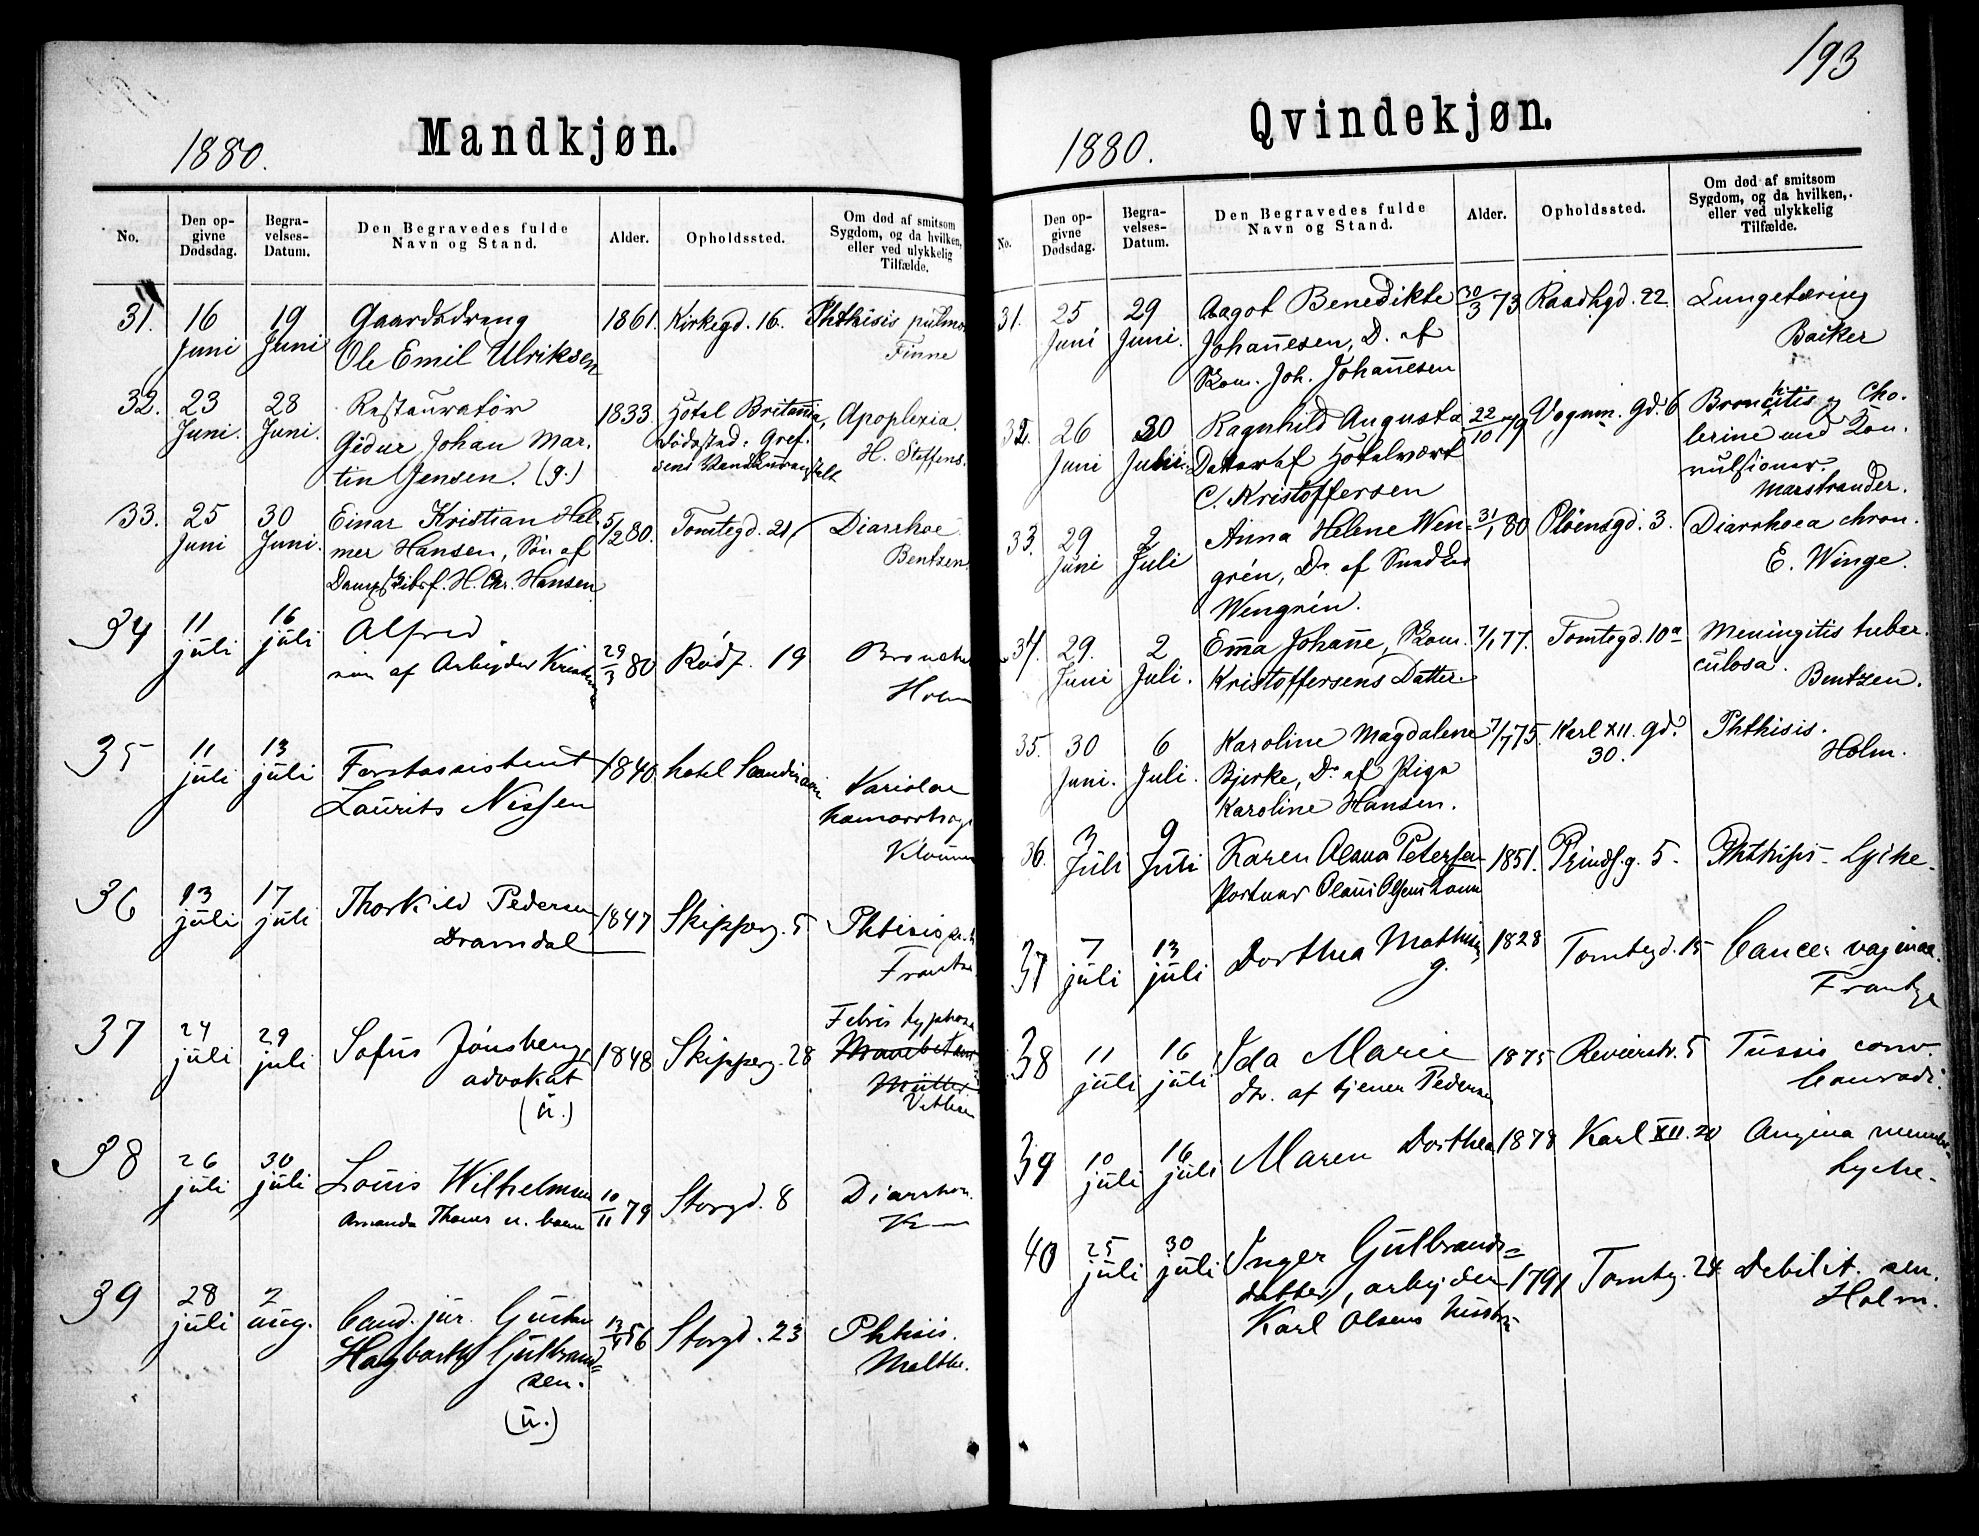 193
1880.
Mandkjøn.
No.
Den op-
givne
Dødsdag.
Begra-
velses-
Datum.
Den Begravedes fulde
Navn og Stand.
Alder.
Opholdssted.
Om død af smitsom
Sygdom, og da hvilken,
eller ved ulykkelig
Tilfælde.
31. 16 Juni 19 Juni Gaardsdreng
Ole Emil Ulriksen
1861. Kirkegd. 16. Phthisis
Finne
32. 23 Juni. 28 Juni. Restauratør
Gidur Johan Mar-
tin Jensen. (g.)
1833. Hotel Britania,
Dødsstad. Gref-
sens
Apoplexia.
H. Steffens.
33. 25 Juni 30 Juni. Einar Kristian Hel-
mer Hansen, Søn af
H. Chr. Hansen
5/2 80. Tomtegd. 21 Diarrhoe
Bentzen.
34 11 juli 16 juli Alfred
søn af Arbejder
29/3 80 Rødf. 19
Holm
35 11 juli 13 juli Forstassistent
Laurits Nissen
1840. hotel
Variolae
36 13 juli 17 juli Thorkild Pedersen
Dramdal
1847 Skipperg. 5 Phtisis
37 24 juli 29 juli Sofus
advokat
(u.)
1848 Skipperg. 28
Febris typhosa
38 26 juli 30 juli Louis Wilhelm
Amanda
10/11 79 Storgd. 8
39 28 juli 2 aug. Cand. jur.
Gulbrand=
sen.
(u.)
56 Storgd. 23 Phtisis.
Malthe.
1880.
Qvindekjøn.
No.
Den op-
givne
Dødsdag.
Begra-
velses-
Datum.
Den Begravedes fulde
Navn og Stand.
Alder.
Opholdssted.
Om død af smitsom
Sygdom, og da hvilken,
eller ved ulykkelig
Tilfælde.
31. 25 Juni 29 Juni. Aagot Benedikte
Johannesen, D. af
Skom. Joh. Johannesen
30/3 73 Raadhgd. 22. Lungetæring
Backer
32. 26 Juni 30 Ragnhild Augusta
Datter af Hotelvært
C. Kristoffersen
22/10 79 Vognm. gd. 6 Broncitis og Cho-
lerine med Kon-
vulsioner.
Marstrander.
33. 29 Juni 2 Juli Anna Helene Wen-
grén, Dr. af Snedker
Wengrén.
31/1 80 Pløensgd. 3. Diarrhoea chron.
E. Winge.
34. 29. Juni 2 Juli. Emma Johanne, Skom.
Kristoffersens Datter.
7/1 77. Tomtegd. 10a Meningitis tuber-
culosa.
Bentzen.
35. 30 Juni. 6 Juli. Karoline Magdalene
Bjerke, Dr. af Pige
Karoline Hansen.
75. Karl XII. gd.
30.
Phthisis.
Holm.
36. 3 Juli 9 Juli Karen Olava Petersen
1851. Prindsg. 5. Phthisis Lyche.
37 7 juli 13 juli Dorthea
g.
1828 Tomtegd. 15 Cancer vaginae.
38 11 juli 16 juli Ida Marie
dtr. af tjener Pedersen
1875 Reveirstr. 5 Tussis conv.
Conradi.
39 10 juli 16 juli Maren Dorthea 1878 Karl XII. 20 Angina
Lyche.
40 25 juli 30 juli Inger Gulbrands=
datter, arbejder
Karl Olsens hustru
1791 Tomteg. 24 Debilit. sen.
Holm.